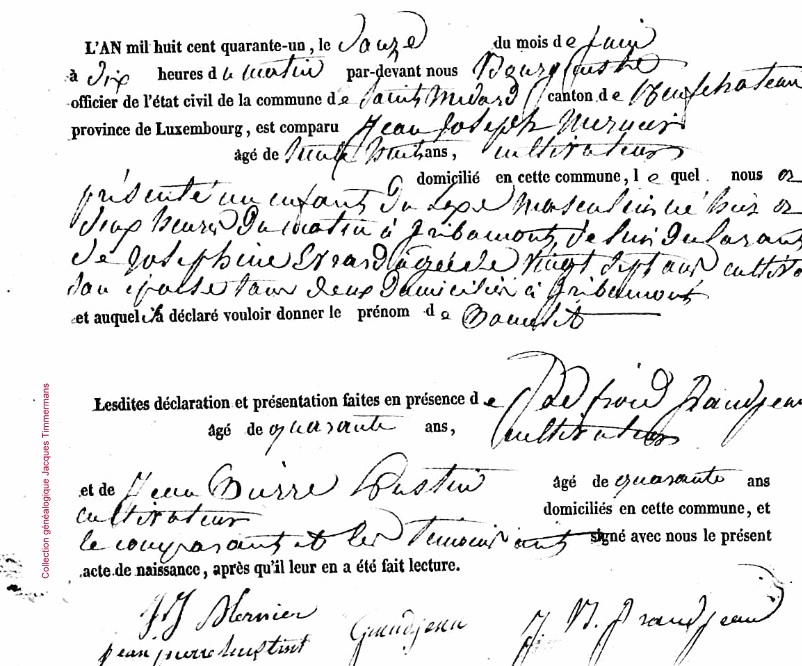 L'AN mil huit cent quarante-un, le douze du mois de juin
à dix heures du matin par-devant nous Bourgmestre
officier de l'état civil de la commune de Saint Médard canton de Neufchateau
province de Luxembourg, est comparu Jean Joseph Mernier
âgé de trente huit ans, cultivateur
domicilié en cette commune, lequel nous a
présenté un enfant du sexe masculin né hier a
deux heures du matin à Gribomont, de lui déclarant
de Josephine Evrard agée de vingt sept ans cultiva
son épouse tous deux domiciliés à Gribomont
et auquel il a déclaré vouloir donner le prénom de
Lesdites déclaration et présentation faites en présence de Godefroid Grandjean
âgé de quarante ans, cultivateur
et de Jean Pierre âgé de quarante ans
cultivateur domiciliés en cette commune, et
le comparant et les témoins ont signé avec nous le présent
acte de naissance, après qu'il leur en a été fait lecture.
J J Mernier Grandjean J. N. Grandjean
jean pierre
Collection généalogique Jacques Timmermans